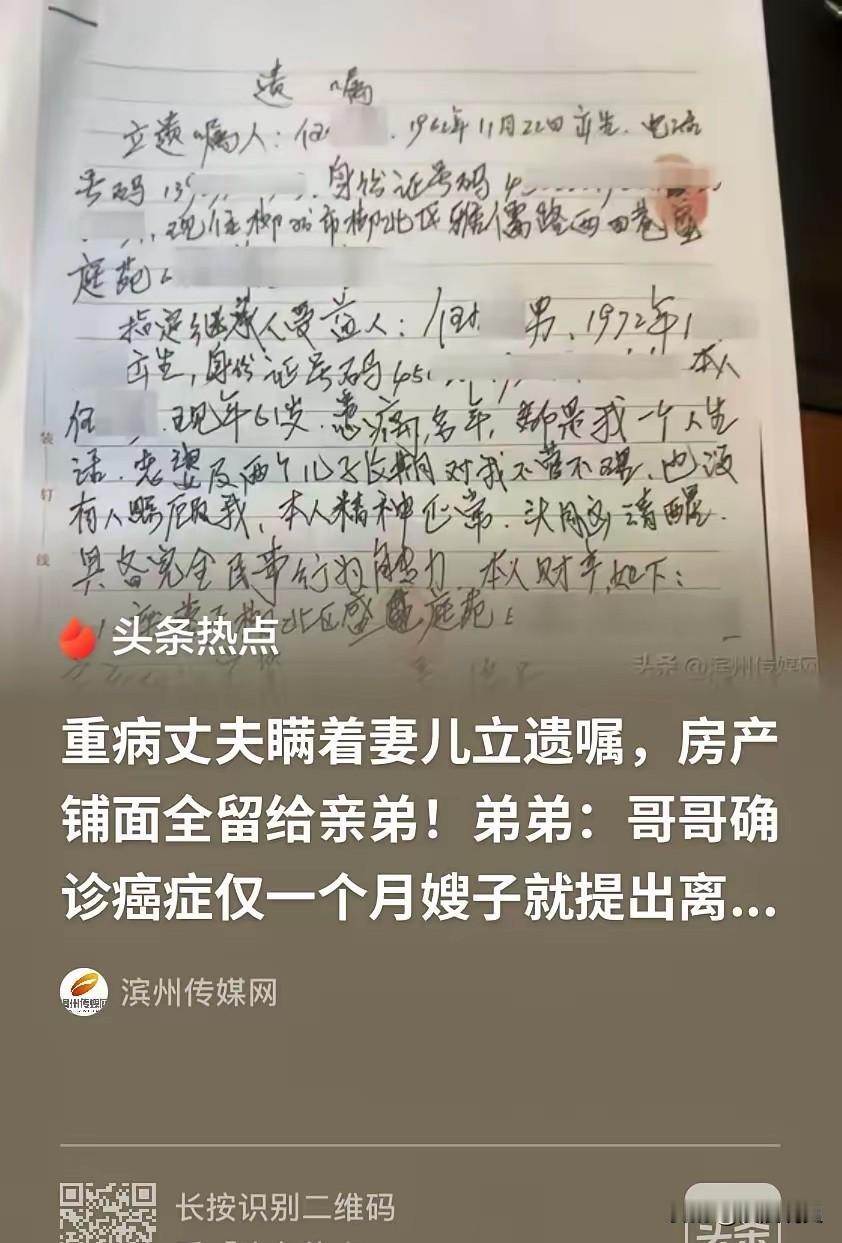 遗嘱
立遗嘱人：任 1962年11月22日出生.电话
号码135 .身份证号码4
现住柳州市柳北区雅儒路西四巷盛
庭苑
指定继承人受益人：任 男、1972年1
出生，身份证号码45 本人
任 现年61岁.患病多年，都是我一个人生
活.老婆及两个儿子长期对我不管不理、也没
有人照顾我，本人精神正常.头脑清醒.
具备完全民事行为能力.本人财产如下：
柳北区盛 庭苑
装
钉
线
头条热点
头条 @滨州传媒网
重病丈夫瞒着妻儿立遗嘱，房产
铺面全留给亲弟！弟弟：哥哥确
诊癌症仅一个月嫂子就提出离...
滨州传媒网
长按识别二维码
头条